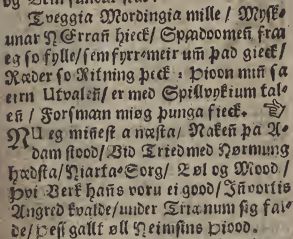 Tveggia Mordingia mille / Mysk-
unar HErrañ hieck / Spædoomeñ fra
eg so fylle / sem fyrr-meir um̃ pad gieck /
Ræder so Ritning peck : Pioon miñ sa
eirn Utvaleñ / er med Spillvykium tal-
eñ / Forsmæn miøg punga fieck. ☞
NU eg miñest a næsta / Nakeñ pa A-
dam stood / Vid Tried med Hørmung
hædsta / Hiarta-Sorg / Bøl og Mood /
Pvi Verk hañs voru ei good / Iñvortis
Angred kvalde / under Triænum sig fal-
de / Pesi gallt øll Heimsins Piood.